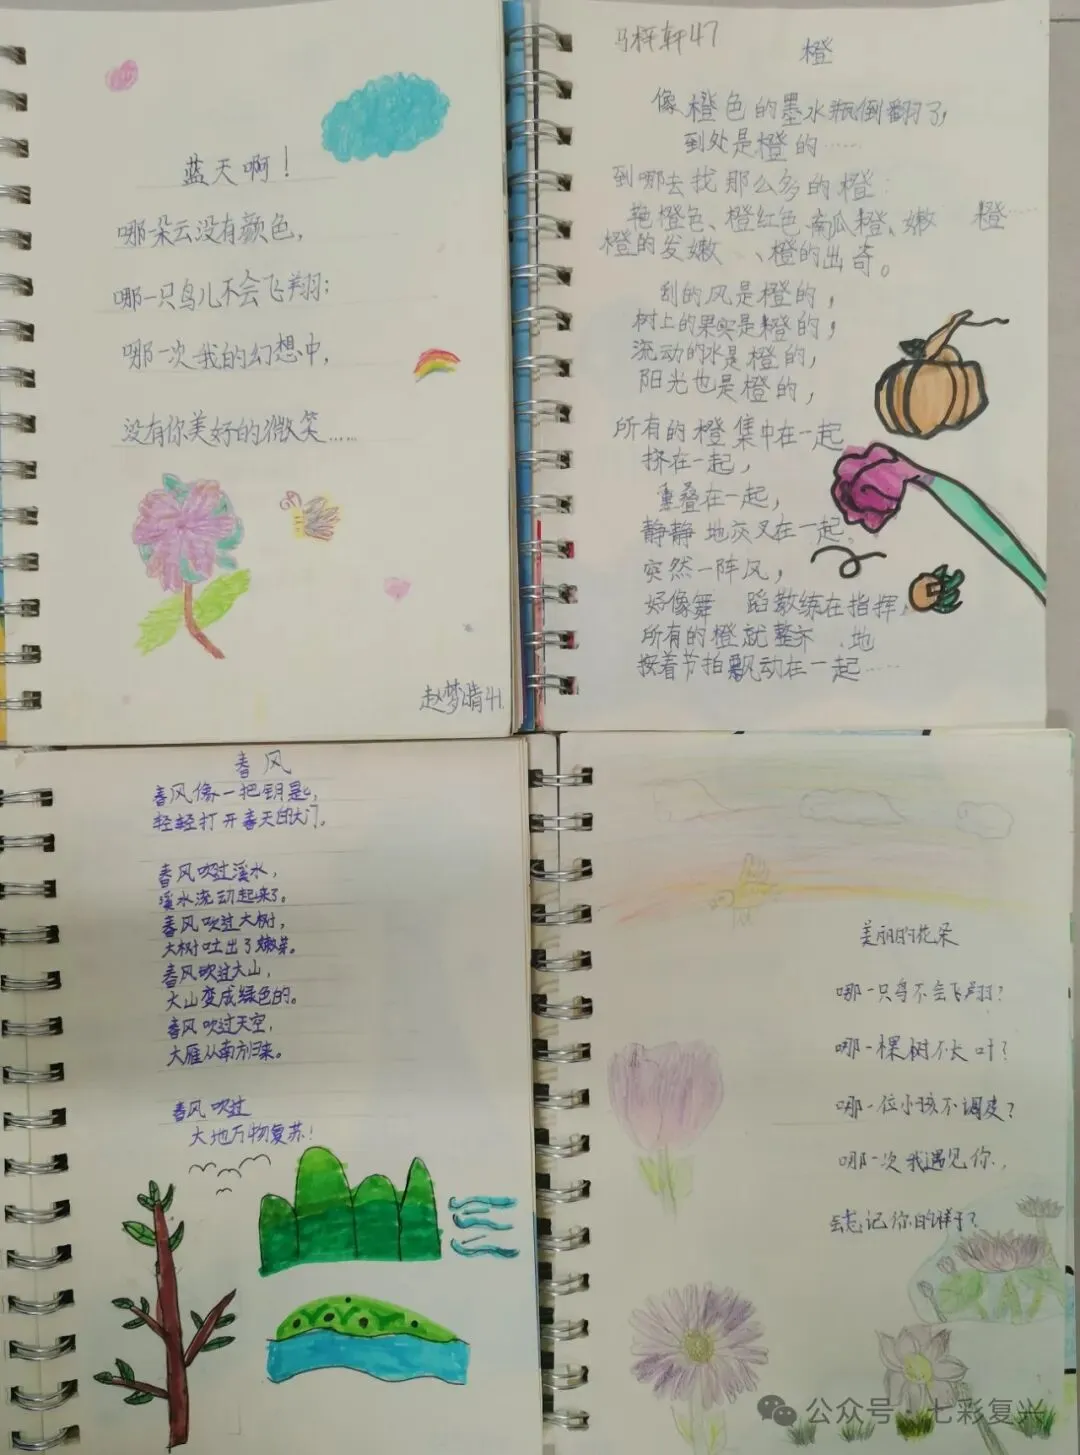 蓝天啊！
哪朵云没有颜色，
哪一只鸟儿不会飞翔；
哪一次我的幻想中，
没有你美好的微笑……
赵梦晴41
马梓轩47
橙
像橙色的墨水瓶倒翻了，
到处是橙的……
到哪去找那么多的橙：
艳橙色、橙红色、南瓜橙、嫩 橙……
橙的发嫩 、橙的出奇。
刮的风是橙的，
树上的果实是橙的，
流动的水是橙的，
阳光也是橙的，
所有的橙集中在一起
挤在一起，
重叠在一起，
静静地交叉在一起。
突然一阵风，
好像舞蹈教练在指挥，
所有的橙就整齐 地
按着节拍飘动在一起……
春风
春风像一把钥匙，
轻轻打开春天的大门。
春风吹过溪水，
溪水流动起来了。
春风吹过大树，
大树吐出了嫩芽。
春风吹过大山，
大山变成绿色的。
春风吹过天空，
大雁从南方归来。
春风吹过
大地万物复苏！
美丽的花朵
哪一只鸟不会飞翔？
哪一棵树不长叶？
哪一位小孩不调皮？
哪一次我遇见你，
会忘记你的样子？
公众号·七彩复兴